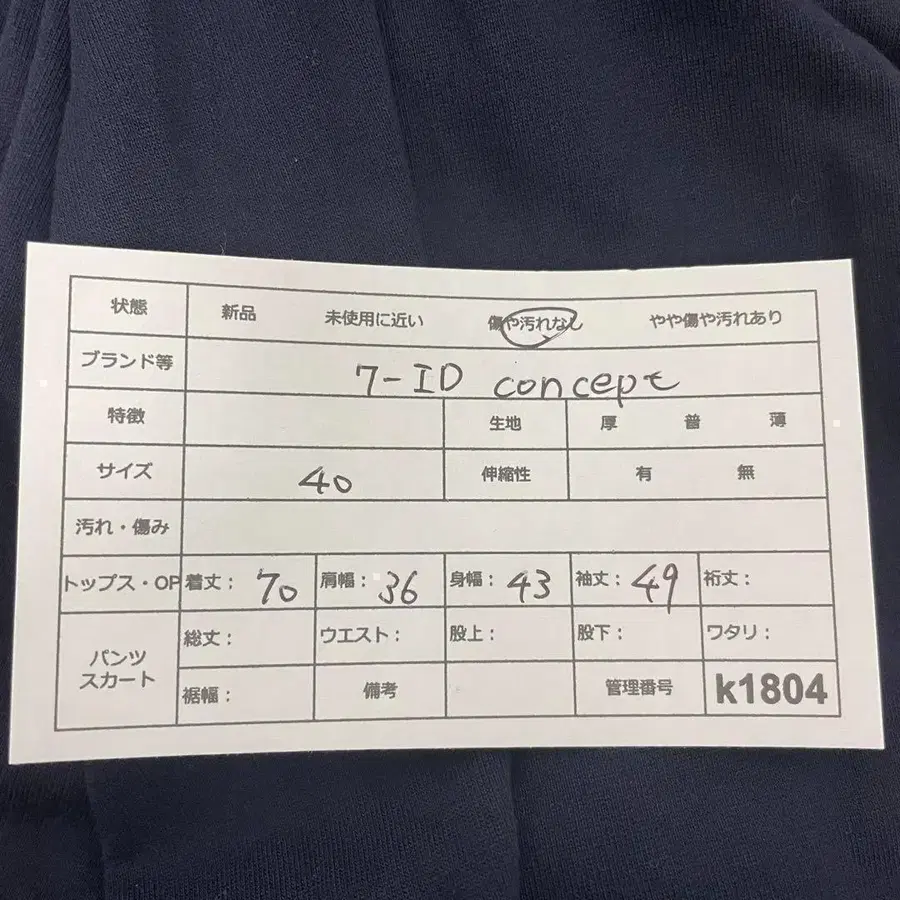 状態 新品 未使用に近い 傷や汚れなし やや傷や汚れあり
ブランド等 7-ID concept
特徴 生地 厚 普 薄
サイズ 40 伸縮性 有 無
汚れ・傷み
トップス・OP 着丈： 70 肩幅： 36 身幅： 43 袖丈： 49 裄丈：
パンツ スカート
総丈： ウエスト： 股上： 股下： ワタリ：
裾幅： 備考 管理番号 k1804